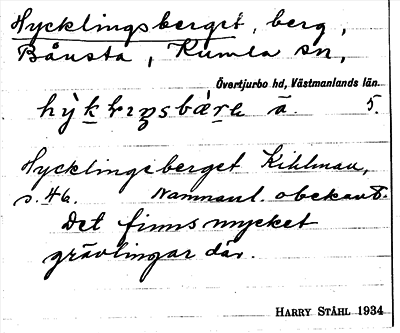 Hycklingsberget, berg,
Bånsta, Kumla sn,
Övertjurbo hd, Västmanlands län.
ä. 5.
Hycklingsberget Killman,
s. 46. Namnunl. obekant.
Det finns mycket
grävlingar där.
HARRY STÅHL 1934